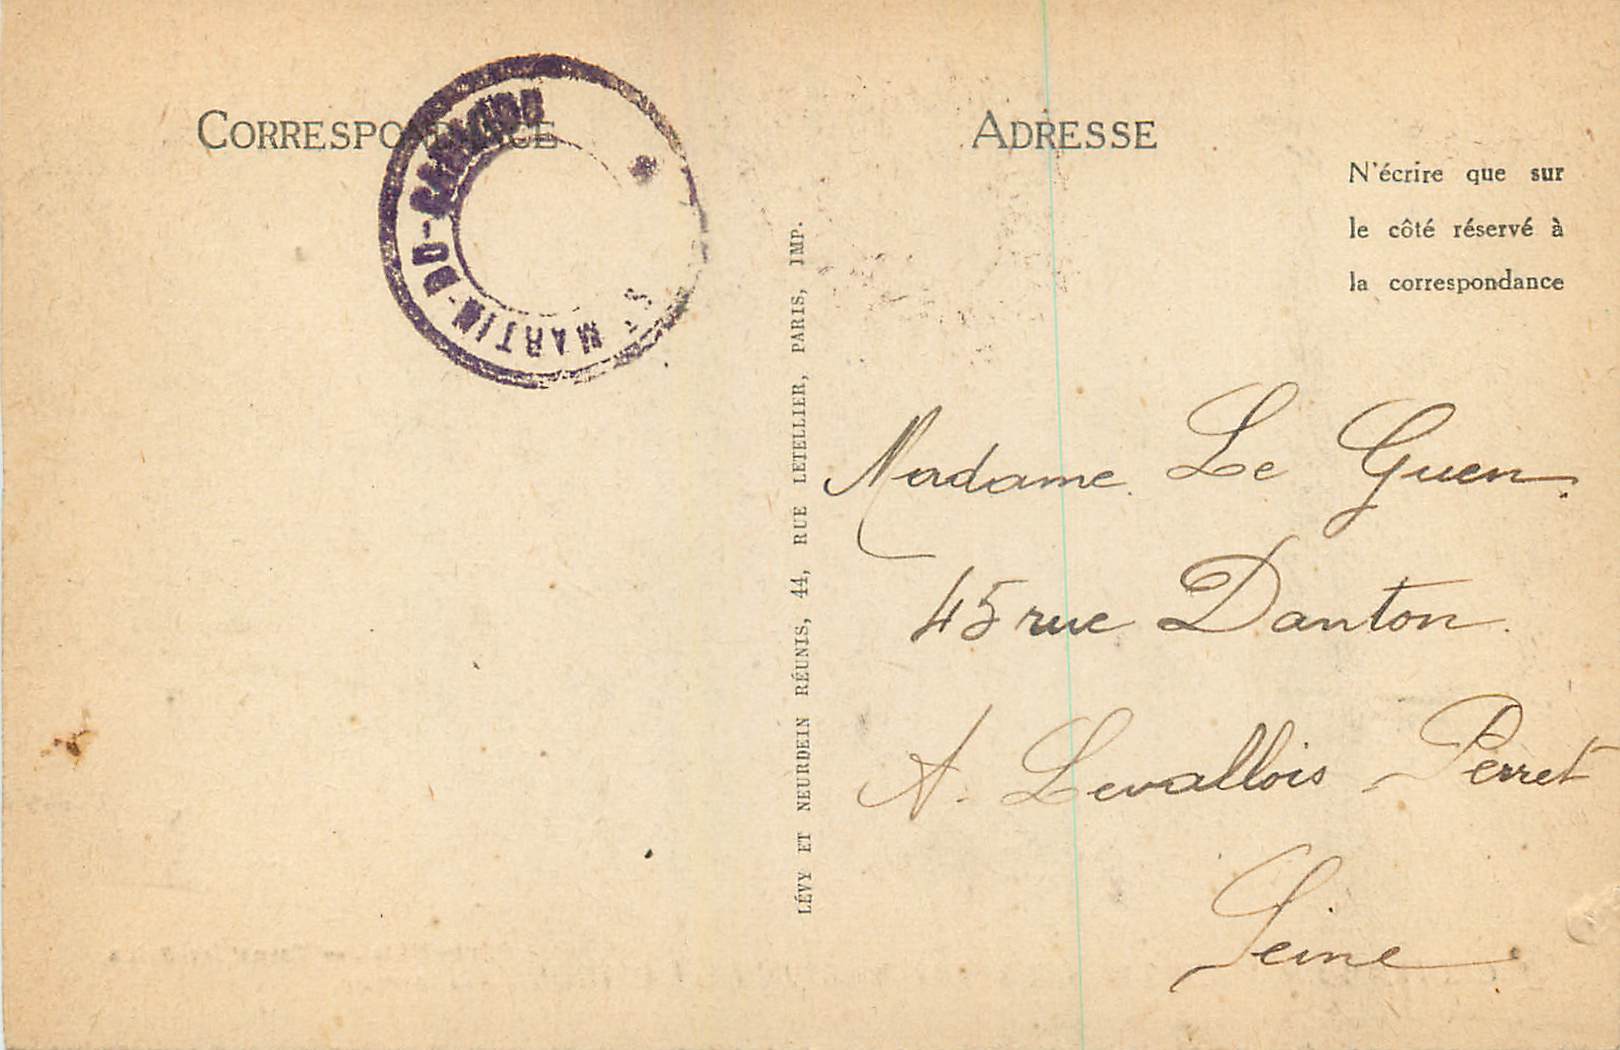 CORRESPONDANCE
ST MARTIN-DU-CANIGOU
ADRESSE
N'écrire que sur
le côté réservé à
la correspondance
LÉVY ET NEURDEIN RÉUNIS, 44, RUE LETELLIER, PARIS, IMP.
Madame Le Guen.
45 rue Danton.
A. Levallois Perret
Seine